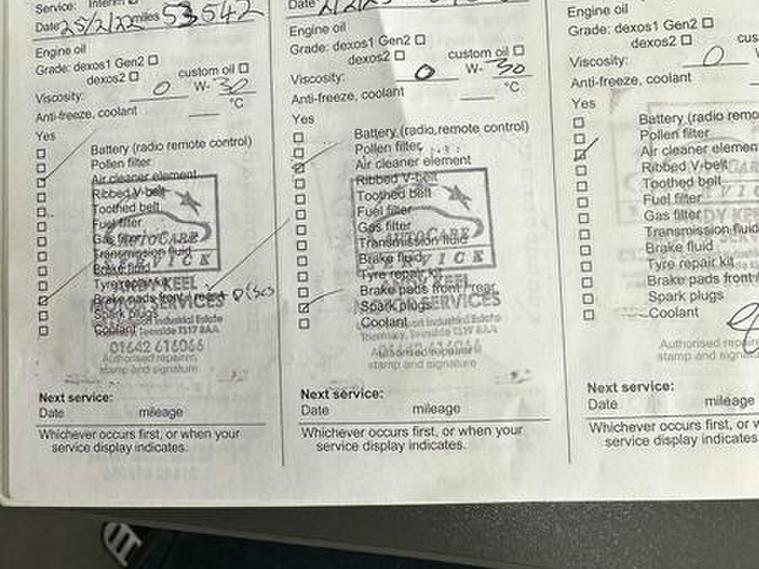 Service: Interim
Date 25/2/22 miles 53542
Engine oil
Grade: dexos1 Gen2
dexos2 custom oil
Viscosity: 0 W- 30
Anti-freeze, coolant °C
Yes
Battery (radio remote control)
Pollen filter
Air cleaner element
Ribbed V-belt
Toothed belt
Fuel filter
Gas filter
Transmission fluid
Brake fluid
Tyre repair kit
Brake pads front / rear + DISCS
Spark plugs
Coolant
AUTOCARE
SERVICE
ANDY KEEL
MOTOR SERVICES
Industrial Estate
Teesside TS17 8AA
01642 616066
Authorised repairer,
stamp and signature
Next service:
Date mileage
Whichever occurs first, or when your
service display indicates.
Date
Engine oil
Grade: dexos1 Gen2
dexos2 custom oil
Viscosity: 0 W- 30
Anti-freeze, coolant °C
Yes
Battery (radio,remote control)
Pollen filter
Air cleaner element
Ribbed V-belt
Toothed belt
Fuel filter
Gas filter
Transmission fluid
Brake fluid
Tyre repair kit
Brake pads front / rear
Spark plugs
Coolant
AUTOCARE
SERVICE
KEEL
SERVICES
Industrial Estate
Teesside TS17 8AA
01642 616066
Authorised repairer,
stamp and signature
Next service:
Date mileage
Whichever occurs first, or when your
service display indicates.
Engine oil
Grade: dexos1 Gen2
dexos2 cus
Viscosity: 0
Anti-freeze, coolant
Yes
Battery (radio remo
Pollen filter
Air cleaner elemen
Ribbed V-belt
Toothed belt
Fuel filter
Gas filter
Transmission fluid
Brake fluid
Tyre repair kit
Brake pads front /
Spark plugs
Coolant
Authorised repaire
stamp and signatu
Next service:
Date mileage
Whichever occurs first, or w
service display indicates